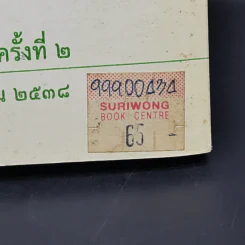 ครั้งที่ ๒
น ๒๕๓๘
SURIWONG
BOOK CENTRE
65 -